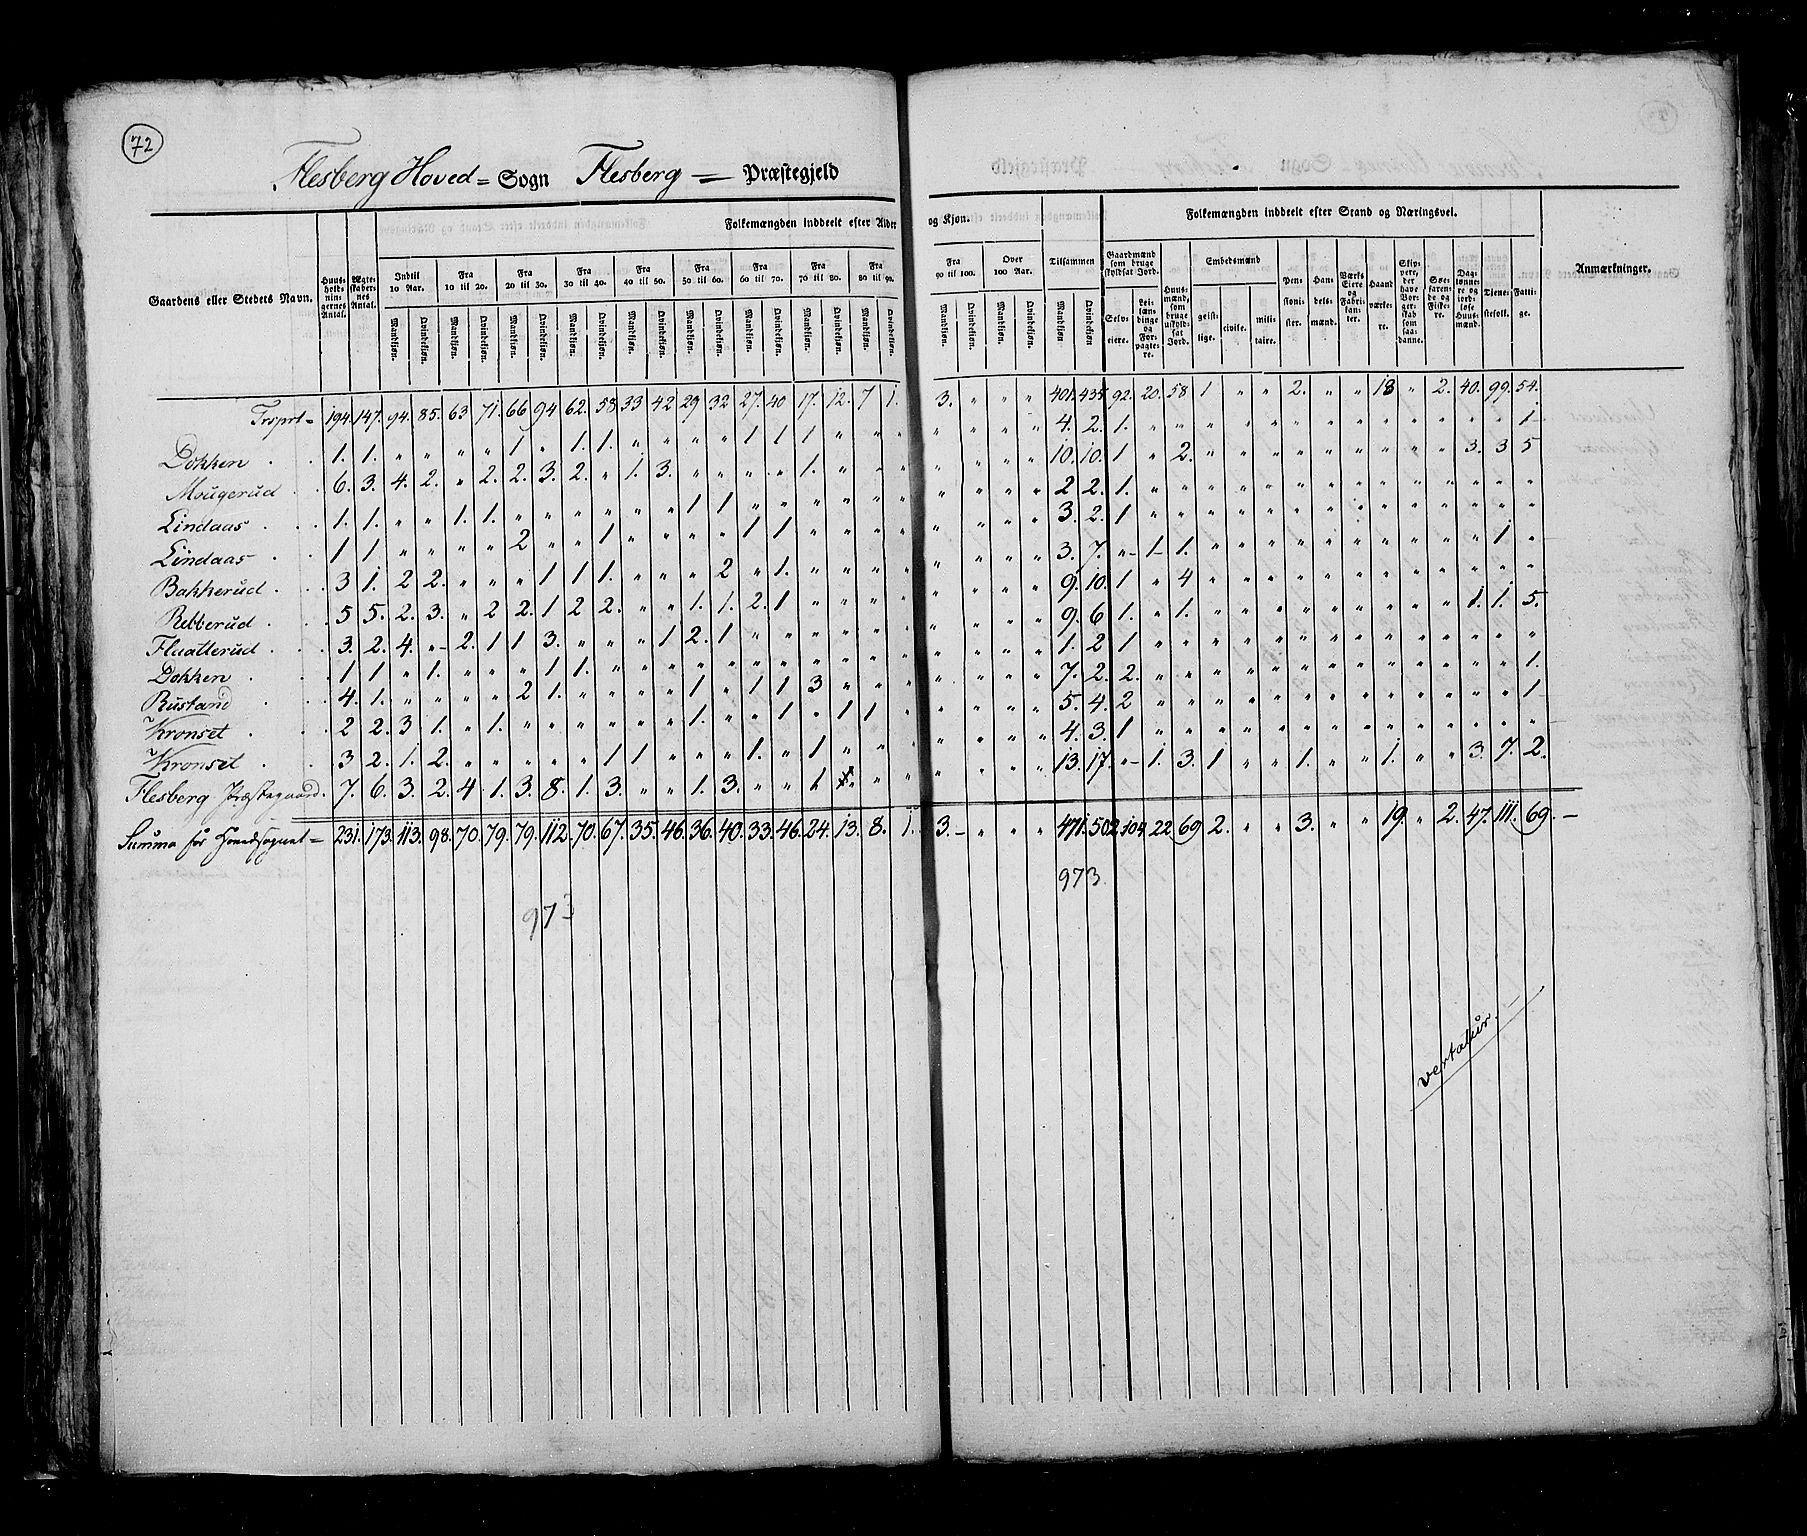 72
Flesberg Hoved = Sogn Flesberg — Præstegjeld
Folkemængden inddeelt efter Alder og Kjøn.
Folkemængden inddeelt efter Stand og Næringsvei.
Gaardens eller Stedets Navn.
Huusholdningernes Antal.
Ægteskabernes Antal.
Indtil 10 Aar. Fra 10 til 20. Fra 20 til 30. Fra 30 til 40. Fra 40 til 50. Fra 50 til 60. Fra 60 til 70. Fra 70 til 80. Fra 80 til 90. Fra 90 til 100. Over 100 Aar. Tilsammen
Mandkiøn. Qvindekiøn.
Gaardmænd som bruge skyldsat Jord. Selveiere. Leilændinge og Forpagtere.
Huusmænd, som bruge uskyldsat Jord.
Embedsmænd geistlige. civile. militaire.
Pensionister. Handelsmænd. Værks Eiere og Fabrikanter. Haandværkere. Skippere, der have Borgerskab som saadanne. Søefarende og Fiskere. Daglønnere og jordløse Huusmænd. Tjenestefolk. Fattige.
Anmærkninger.
Trsprt = 194. 147. 94. 85. 63 71. 66 94 62. 58 33 42 29 32 27. 40 17. 12. 7 1. 3. " " " 401. 435. 92. 20. 58 1 " " 2. " " 18 " 2. 40. 99. 54.
Dokken . . 1. 1. " " " " 1 " 1. 1. " " " " 1 1 1 " " " " " " " 4. 2. 1. " " " " " " " " " " " " " 1
Mougerud . . 6. 3. 4. 2. " 2. 2. 3. 2. " 1. 3. " " " " 1. " " " " " " " 10. 10. 1 " 2. " " " " " " " " " 3. 3 5
Lindaas . . 1. 1. " " 1. 1. " " " " " " 1 1 " " " " " " " " " " 2 2. 1. " " " " " " " " " " " " " "
Lindaas . . 1 1 " " " " 2 " " 1 " " " " 1 1 " " " " " " " " 3. 2. 1 " " " " " " " " " " " " " "
Bakkerud . . 3 1. 2 2. " " " 1 1 1. " " " 2 " 1. " " " " " " " " 3. 7. " 1 1. " " " " " " " " " " 1. "
Rebberud . . 5 5. 2. 3. " 2 2. 1 2 2. " " 1. 1. 2. 1 " " " " " " " " 9. 10. 1 " 4 " " " " " " " " " " " "
Fluatterud . . 3. 2. 4. " 2. 1 1 3. " " " 1 2. 1 " " " " " " " " " " 9 6 1. " 1. " " " " " " " " " 1. 1. 5.
Dokken . . 1 1 " 1. " " " 1 1. " " " " " " " " " " " " " " " 1. 2 1 " " " " " " " " " " " " " "
Rustand . . 4. 1. " " " " 2 1. " " " " 1 " 1 1 3 " " " " " " " 7. 2. 2. " " " " " " " " " " " " " 1.
Kronset . . 2 2. 3 1. " 1. " " " " " " 1. " " 1 " 1 1 " " " " " 5. 4. 2 " " " " " " " " " " " " " 1
Kronset . . 3 2. 1. 2. " " " " " 1 1 " " " 1. " 1 " " " " " " " 4. 3. 1 " " " " " " " " " " " " " "
Flesberg Præstegaard. 7. 6. 3. 2. 4 1. 3. 8. 1. 3. " " 1. 3. " " 1. " " " " " " " 13. 17. " 1. 3. 1 " " 1. " " 1. " " 3. 7. 2.
Summa for Hovedsognet = 231. 173. 113. 98. 70. 79. 79. 112. 70. 67. 35. 46. 36. 40. 33. 46. 24. 13. 8. 1. 3. " " " 471. 502. 104. 22. 69. 2. " " 3. " " 19. " 2. 47. 111. 69. —
973
973
vertatur.